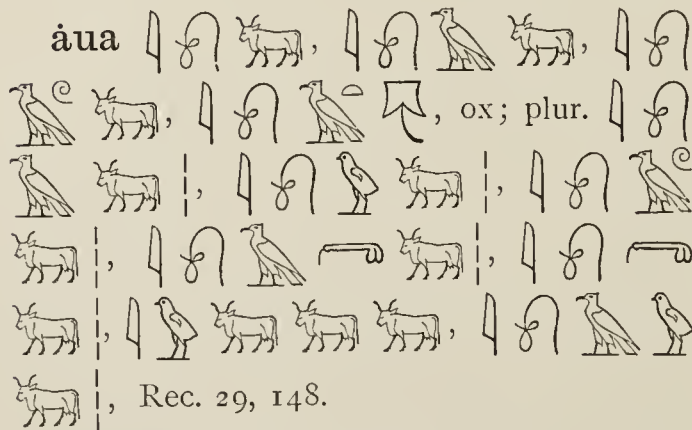 ȧua 𓇋𓍯𓃒, 𓇋𓍯𓄿𓃒, 𓇋𓍯
𓄿𓏲𓃒, 𓇋𓍯𓄿𓏏𓄛, ox; plur. 𓇋𓍯
𓄿𓃒𓏪, 𓇋𓍯𓅱𓃒𓏪, 𓇋𓍯𓄿𓏲
𓃒𓏪, 𓇋𓍯𓄿𓂝𓃒𓏪, 𓇋𓍯𓂝
𓃒𓏪, 𓇋𓅱𓃒𓃒𓃒, 𓇋𓍯𓄿𓅱
𓃒𓏪, Rec. 29, 148.